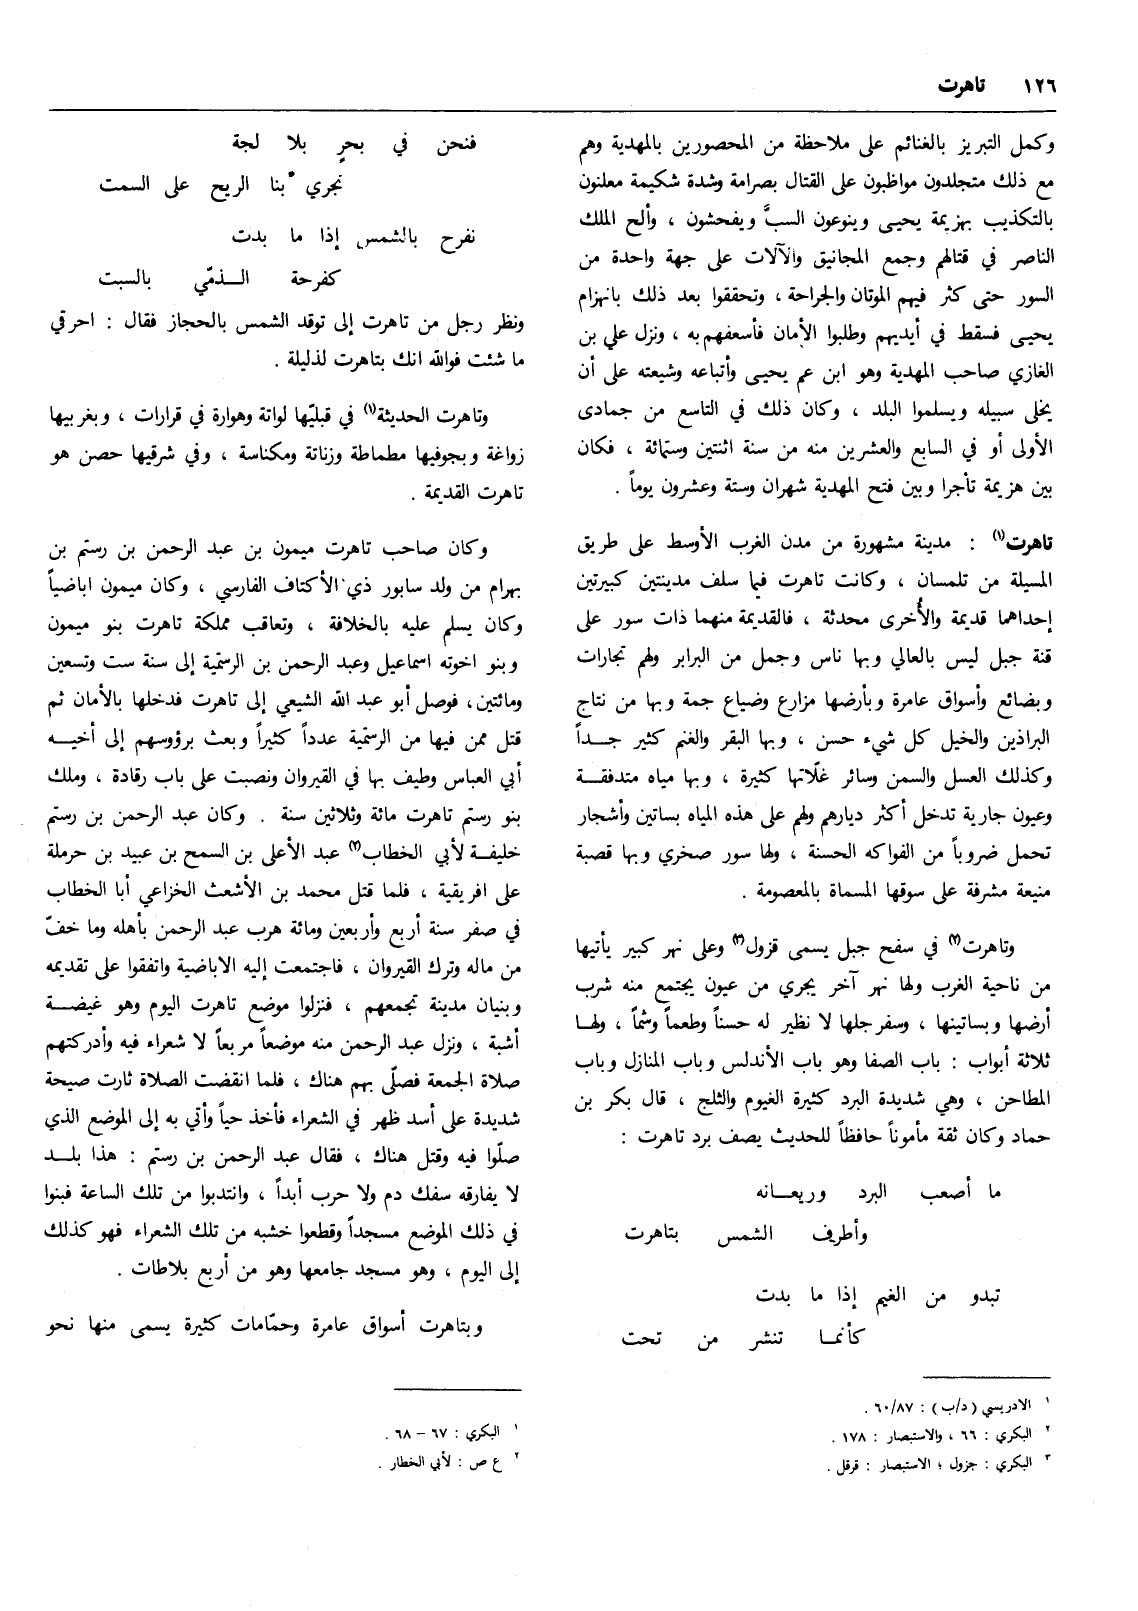 ١٢٦ تاهرت
وكمل التبريز بالغنائم على ملاحظة من المحصورين بالمهدية وهم
مع ذلك متجلدون مواظبون على القتال بصرامة وشدة شكيمة معلنون
بالتكذيب بهزيمة يحيى وينوعون السبَّ ويفحشون ، وألح الملك
الناصر في قتالهم وجمع المجانيق والآلات على جهة واحدة من
السور حتى كثر فيهم الموتان والجراحة ، وتحققوا بعد ذلك بانهزام
يحيى فسقط في أيديهم وطلبوا الأمان فأسعفهم به ، ونزل علي بن
الغازي صاحب المهدية وهو ابن عم يحيى وأتباعه وشيعته على أن
يخلى سبيله ويسلموا البلد ، وكان ذلك في التاسع من جمادى
الأولى أو في السابع والعشرين منه من سنة اثنتين وستمائة ، فكان
بين هزيمة تأجرا وبين فتح المهدية شهران وستة وعشرون يوماً .
تاهرت(١) : مدينة مشهورة من مدن الغرب الأوسط على طريق
المسيلة من تلمسان ، وكانت تاهرت فيما سلف مدينتين كبيرتين
إحداهما قديمة والأُخرى محدثة ، فالقديمة منهما ذات سور على
قنة جبل ليس بالعالي وبها ناس وجمل من البرابر ولهم تجارات
وبضائع وأسواق عامرة وبأرضها مزارع وضياع جمة وبها من نتاج
البراذين والخيل كل شيء حسن ، وبها البقر والغنم كثير جـــداً
وكذلك العسل والسمن وسائر غلّاتها كثيرة ، وبها مياه متدفقـــة
وعيون جارية تدخل أكثر ديارهم ولهم على هذه المياه بساتين وأشجار
تحمل ضروباً من الفواكه الحسنة ، ولها سور صخري وبها قصبة
منيعة مشرفة على سوقها المسماة بالمعصومة .
وتاهرت(٢) في سفح جبل يسمى قزول(٣) وعلى نهر كبير يأتيها
من ناحية الغرب ولها نهر آخر يجري من عيون يجتمع منه شرب
أرضها وبساتينها ، وسفرجلها لا نظير له حسناً وطعماً وشماً ، ولهــا
ثلاثة أبواب : باب الصفا وهو باب الأندلس وباب المنازل وباب
المطاحن ، وهي شديدة البرد كثيرة الغيوم والثلج ، قال بكر بن
حماد وكان ثقة مأموناً حافظاً للحديث يصف برد تاهرت :
ما أصعب البرد وريعـــانه
وأطرف الشمس بتاهرت
تبدو من الغيم إذا ما بدت
كأنمــا تنشر من تحت
١ الادريسي (د/ب) : ٦٠/٨٧ .
٢ البكري : ٦٦ ، والاستبصار : ١٧٨ .
٣ البكري : جزول ؛ الاستبصار : قرقل .
فنحن في بحرٍ بلا لجة
نجري بنا الريح على السمت
نفرح بالشمس إذا ما بدت
كفرحة الــذمّي بالسبت
ونظر رجل من تاهرت إلى توقد الشمس بالحجاز فقال : احرقي
ما شئت فوالله انك بتاهرت لذليلة .
وتاهرت الحديثة(١) في قبليّها لواتة وهوارة في قرارات ، وبغربيها
زواغة وبجوفيها مطماطة وزناتة ومكناسة ، وفي شرقيها حصن هو
تاهرت القديمة .
وكان صاحب تاهرت ميمون بن عبد الرحمن بن رستم بن
بهرام من ولد سابور ذي الأكتاف الفارسي ، وكان ميمون اباضياً
وكان يسلم عليه بالخلافة ، وتعاقب مملكة تاهرت بنو ميمون
وبنو اخوته اسماعيل وعبد الرحمن بن الرستمية إلى سنة ست وتسعين
ومائتين، فوصل أبو عبد الله الشيعي إلى تاهرت فدخلها بالأمان ثم
قتل ممن فيها من الرستمية عدداً كثيراً وبعث برؤوسهم إلى أخيـــه
أبي العباس وطيف بها في القيروان ونصبت على باب رقادة ، وملك
بنو رستم تاهرت مائة وثلاثين سنة . وكان عبد الرحمن بن رستم
خليفــة لأبي الخطاب(٢) عبد الأعلى بن السمح بن عبيد بن حرملة
على افريقية ، فلما قتل محمد بن الأشعث الخزاعي أبا الخطاب
في صفر سنة أربع وأربعين ومائة هرب عبد الرحمن بأهله وما خفّ
من ماله وترك القيروان ، فاجتمعت إليه الاباضية واتفقوا على تقديمه
وبنيان مدينة تجمعهم ، فنزلوا موضع تاهرت اليوم وهو غيضـــة
أشبة ، ونزل عبد الرحمن منه موضعاً مربعاً لا شعراء فيه وأدركتهم
صلاة الجمعة فصلّى بهم هناك ، فلما انقضت الصلاة ثارت صيحة
شديدة على أسد ظهر في الشعراء فأخذ حياً وأتي به إلى الموضع الذي
صلّوا فيه وقتل هناك ، فقال عبد الرحمن بن رستم : هذا بلـــد
لا يفارقه سفك دم ولا حرب أبداً ، وانتدبوا من تلك الساعة فبنوا
في ذلك الموضع مسجداً وقطعوا خشبه من تلك الشعراء فهو كذلك
إلى اليوم ، وهو مسجد جامعها وهو من أربع بلاطات .
وبتاهرت أسواق عامرة وحمّامات كثيرة يسمى منها نحو
١ البكري : ٦٧ – ٦٨ .
٢ ع ص : لأبي الخطار .